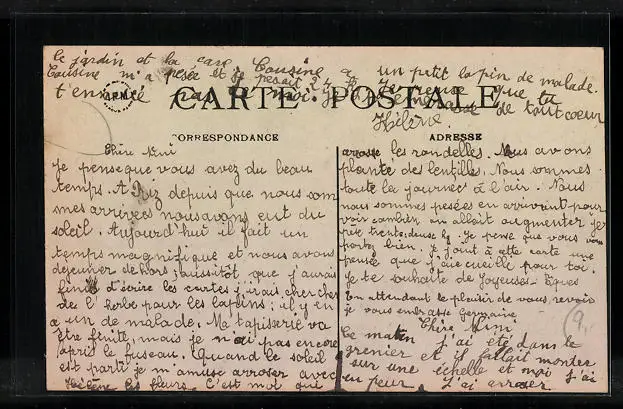 le jardin et la cave Cousine a un petit lapin de malade.
Cousine m'a pesée et je pesait 24 K. Je pense que tu
t'ennuie pas de moi. Je t'embrasse de tout coeur
Hélène
CARTE POSTALE
CORRESPONDANCE
Chère Nini
Je pense que vous avez du beau
temps. A Riz depuis que nous som
mes arrivées nous avons eut du
soleil. Aujourd'hui il fait un
temps magnifique et nous avons
dejeuner dehors; aussitôt que j'aurais
finit d'écrire les cartes j'irais chercher
de l'herbe pour les lapins; il y en
a un de malade. Ma tapisserie va
être finite, mais je n'ai pas encore
apris le fuseau. Quand le soleil
est parti je m'amuse arroser avec
Hélène les fleurs. C'est moi qui
ADRESSE
arrose les rondelles. Nous avons
planté des lentilles. Nous sommes
toute la journée à l'air. Nous
nous sommes pesées en arrivant pour
voir combien on allait augmenter je
pèse trente deux kg. Je pense que vous vous
portez bien. Je joint à cette carte une
pensé que j'ai cueilli pour toi.
Je te souhaite de Joyeuses Pâques
En attendant le plaisir de vous revoir
je vous embrasse Germaine
Chère Nini
Ce matin j'ai été dans le
grenier et il fallait monter
sur une échelle et moi j'ai
eu peur. J'ai arroser
9,